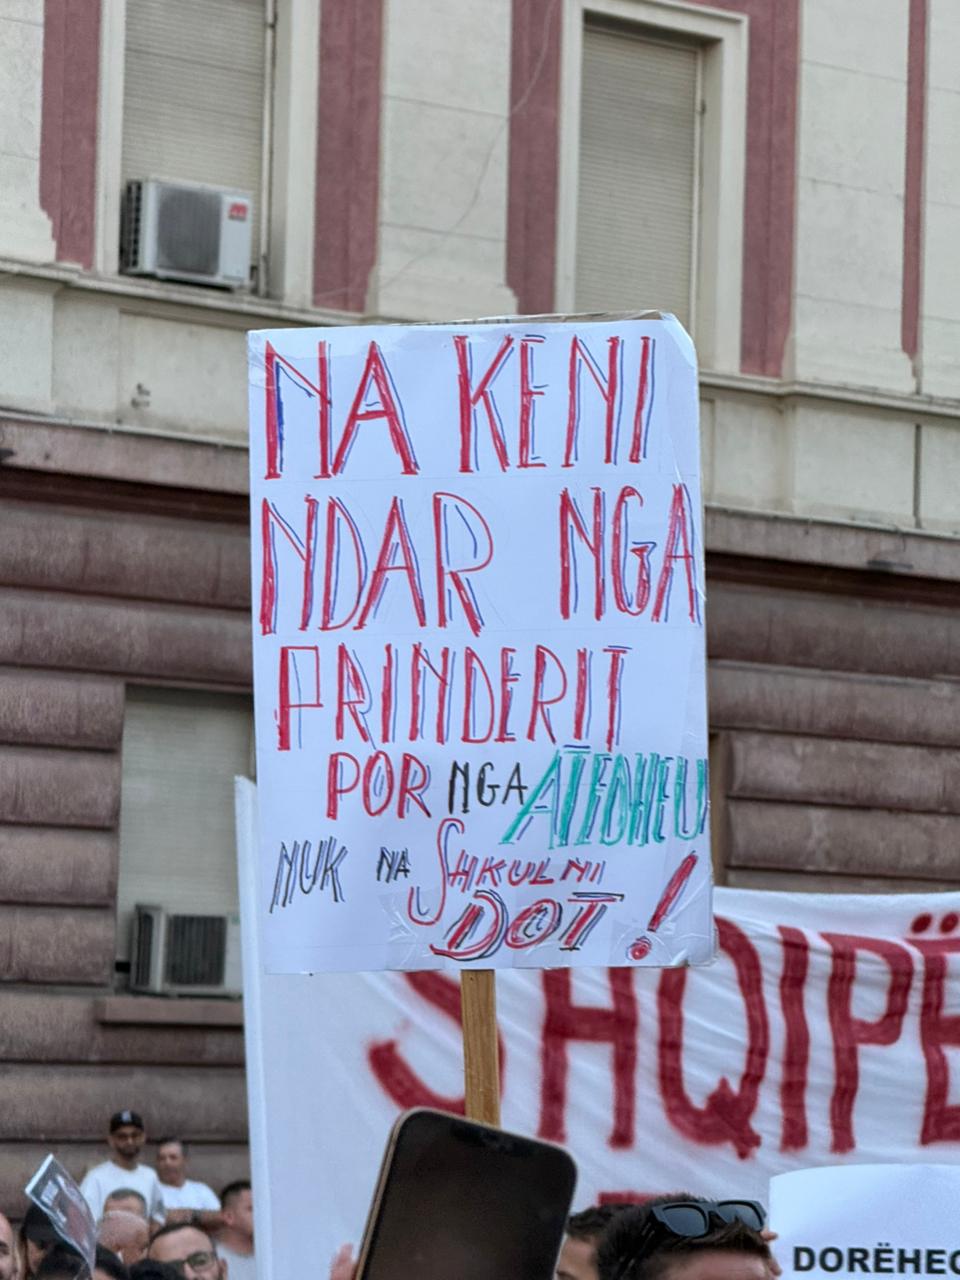 NA KENI
NDAR NGA
PRINDERIT
POR NGA ATEDHEU
NUK NA SHKULNI
DOT!
SHQIPË
DORËHEQ